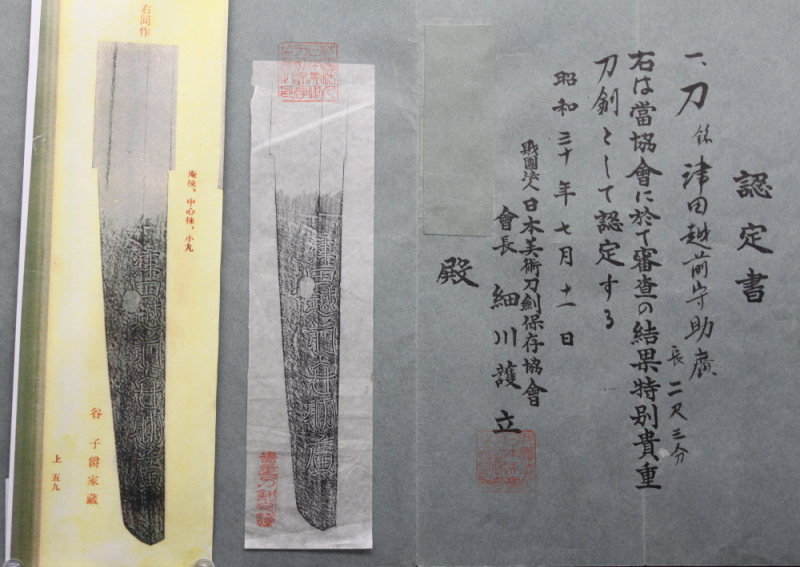 認定書
一、刀 銘 津田越前守助廣
長二尺三分
右は當協會に於て審査の結果特別貴重
刀劍として認定する
昭和三十年七月十一日
財團法人日本美術刀劍保存協會
會長 細川護立
殿
津田越前守助廣
右同作
庵棟、中心棟、小丸
津田越前守助廣
谷子爵家蔵
上 五九